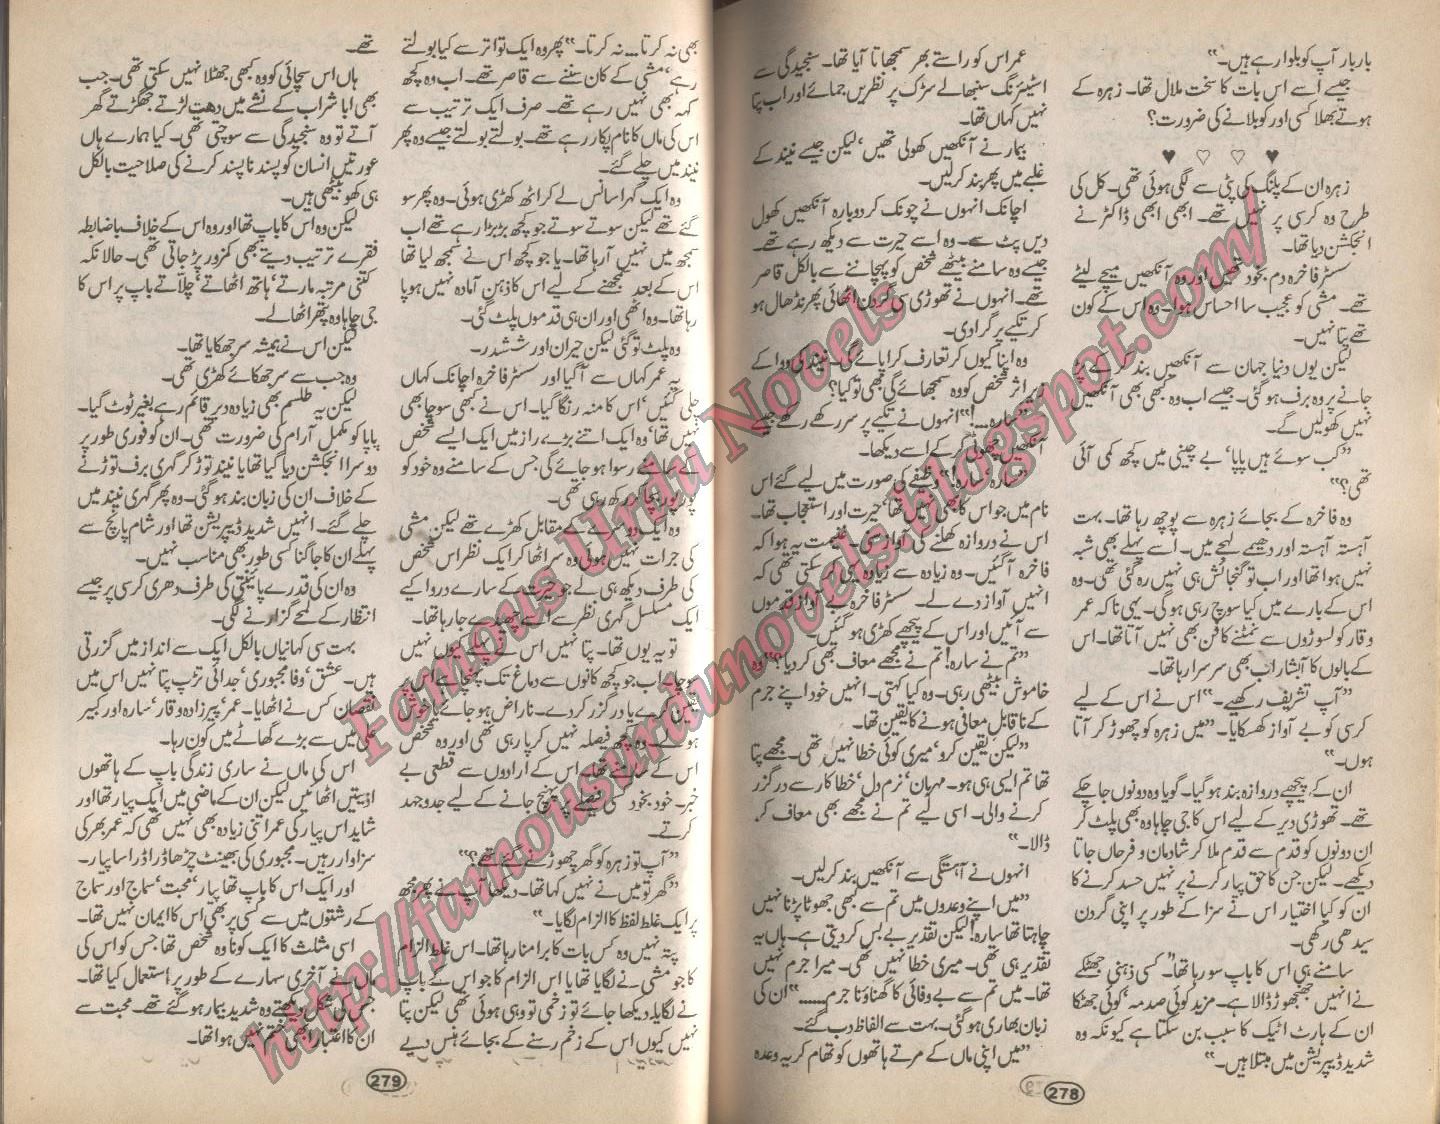 بار بار آپ کو بلوا رہے ہیں۔"
جیسے اسے اس بات کا سخت ملال تھا۔ زہرہ کے
ہوتے بھلا کسی اور کو بلانے کی ضرورت؟
♥ ♡ ♡ ♥
زہرہ ان کے پلنگ کی پٹی سے لگی ہوئی تھی۔ کل کی
طرح وہ کرسی پر نہیں تھے۔ ابھی ابھی ڈاکٹر نے
انجکشن دیا تھا۔
سسٹر فاخرہ دم بخود تھیں اور وہ آنکھیں میچے لیٹے
تھے۔ مشی کو عجیب سا احساس ہوا۔ وہ اس کے کون
تھے پتا نہیں۔
لیکن یوں دنیا جہان سے آنکھیں بند کر کے پڑ
جانے پر وہ برف ہو گئی۔ جیسے اب وہ کبھی بھی آنکھیں
نہیں کھولیں گے۔
"کب سوئے ہیں پاپا، بے چینی میں کچھ کمی آئی
تھی؟"
وہ فاخرہ کے بجائے زہرہ سے پوچھ رہا تھا۔ بہت
آہستہ آہستہ اور دھیمے لہجے میں۔ اسے پہلے بھی شبہ
نہیں ہوا تھا اور اب تو گنجائش ہی نہیں رہ گئی تھی۔ وہ
اس کے بارے میں کیا سوچ رہی ہو گی۔ یہی نا کہ عمر
وقار کو لسوڑوں سے نمٹنے کا فن بھی نہیں آتا تھا۔ اس
کے بالوں کا آبشار اب بھی سرسرا رہا تھا۔
"آپ تشریف رکھیے۔" اس نے اس کے لیے
کرسی کو بے آواز کھسکایا۔ "میں زہرہ کو چھوڑ کر آتا
ہوں۔"
ان کے پیچھے دروازہ بند ہو گیا۔ گویا وہ دونوں جا چکے
تھے۔ تھوڑی دیر کے لیے اس کا جی چاہا وہ بھی پلٹ کر
ان دونوں کو قدم سے قدم ملا کر شادمان و فرحاں جاتا
دیکھے۔ لیکن جن کا حق پیار کرنے پر نہیں حسد کرنے کا
ان کو کیا اختیار اس نے سزا کے طور پر اپنی گردن
سیدھی رکھی۔
سامنے ہی اس کا باپ سو رہا تھا۔ "کسی ذہنی جھٹکے
نے انہیں جھنجھوڑ ڈالا ہے۔ مزید کوئی صدمہ، کوئی جھٹکا
ان کے ہارٹ اٹیک کا سبب بن سکتا ہے کیونکہ وہ
شدید ڈیپریشن میں مبتلا ہیں۔"
عمر اس کو راستے بھر سمجھاتا آیا تھا۔ سنجیدگی سے
اسٹیئرنگ سنبھالے سڑک پر نظریں جمائے اور اب پتا
نہیں کہاں تھا۔
بیمار نے آنکھیں کھولی تھیں، لیکن جیسے نیند کے
غلبے میں پھر بند کر لیں۔
اچانک انہوں نے چونک کر دوبارہ آنکھیں کھول
دیں پٹ سے۔ وہ اسے حیرت سے دیکھ رہے تھے۔
جیسے وہ سامنے بیٹھے شخص کو پہچاننے سے بالکل قاصر
تھے۔ انہوں نے تھوڑی سی گردن اٹھائی پھر نڈھال ہو
کر تکیے پر گرا دی۔
وہ اپنا کیوں کر تعارف کرا پائے گی۔ نیند کی دوا کے
زیر اثر شخص کو وہ سمجھائے گی بھی تو کیا؟
"سارہ۔۔۔!" انہوں نے تکیے پر سر رکھے رکھے جیسے
آنکھیں چھوٹی کر کے اسے دیکھا۔
"سارہ، سارہ!" وظیفے کی صورت میں لیے گئے اس
نام میں جو اس کا بھی نہیں تھا، حیرت اور استعجاب تھا۔
اس نے دروازہ کھلنے کی آواز سنی۔ غنیمت یہ ہوا کہ
فاخرہ آ گئیں۔ وہ زیادہ سے زیادہ یہی کر سکتی تھی کہ
انہیں آواز دے لے۔ سسٹر فاخرہ بے آواز قدموں
سے آئیں اور اس کے پیچھے کھڑی ہو گئیں۔
"تم نے سارہ! تم نے مجھے معاف بھی کر دیا؟" وہ
خاموش بیٹھی رہی۔ وہ کیا کہتی۔ انہیں خود اپنے جرم
کے ناقابل معافی ہونے کا یقین تھا۔
"لیکن یقین کرو، میری کوئی خطا نہیں تھی۔ مجھے پتا
تھا تم ایسی ہی ہو۔ مہربان، نرم دل، خطا کار سے درگزر
کرنے والی۔ اسی لیے تم نے مجھے بھی معاف کر
ڈالا۔"
انہوں نے آہستگی سے آنکھیں بند کر لیں۔
"میں اپنے وعدوں میں تم سے بھی جھوٹا پڑنا نہیں
چاہتا تھا سارہ! لیکن تقدیر بے بس کر دیتی ہے۔ ہاں یہ
تقدیر ہی تھی۔ میری خطا نہیں تھی۔ میرا جرم نہیں
تھا۔ میں تم سے بے وفائی کا گھناؤنا جرم۔۔۔۔۔" ان کی
زبان بھاری ہو گئی۔ بہت سے الفاظ دب گئے۔
"میں اپنی ماں کے مرتے ہاتھوں کو تھام کر یہ وعدہ
278
بھی نہ کرتا۔۔۔ نہ کرتا۔" پھر وہ ایک تواتر سے کیا بولتے
رہے، مشی کے کان سننے سے قاصر تھے۔ اب وہ کچھ
کہہ بھی نہیں رہے تھے۔ صرف ایک ترتیب سے
اس کی ماں کا نام پکار رہے تھے۔ بولتے بولتے جیسے وہ پھر
نیند میں چلے گئے۔
وہ ایک گہرا سانس لے کر اٹھ کھڑی ہوئی۔ وہ پھر سو
گئے تھے لیکن سوتے سوتے جو کچھ بڑبڑا رہے تھے اب
سمجھ میں نہیں آ رہا تھا۔ یا جو کچھ اس نے سمجھ لیا تھا
اس کے بعد سمجھنے کے لیے اس کا ذہن آمادہ نہیں ہو پا
رہا تھا۔ وہ اٹھی اور ان ہی قدموں پلٹ گئی۔
وہ پلٹ تو گئی لیکن حیران اور ششدر۔
یہ عمر کہاں سے آ گیا اور سسٹر فاخرہ اچانک کہاں
چلی گئیں، اس کا منہ رنگا گیا۔ اس نے کبھی سوچا بھی
نہیں تھا، وہ ایک اتنے بڑے راز میں ایک ایسے شخص
کے سامنے رسوا ہو جائے گی جس کے سامنے وہ خود کو
پور پور بچا کر رکھ رہی تھی۔
وہ ایک دوسرے کے مقابل کھڑے تھے لیکن مشی
کی جرات نہیں ہوئی وہ سر اٹھا کر ایک نظر اس شخص
کی طرف دیکھ ہی لے جو حیرت کے سارے در وا کیے
ایک مسلسل گہری نظر سے اسے دیکھے جا رہا تھا۔
تو یہ یوں تھا۔ پتا نہیں اس نے پہلے کیوں نہیں
سوچا۔ اب جو کچھ کانوں سے دماغ تک پہنچا ہے اس پر
یقین کرے یا درگزر کر دے۔ ناراض ہو جائے یا خوش
ہو لے۔ وہ کچھ فیصلہ نہیں کر پا رہی تھی اور وہ شخص
اس کے سامنے تھا۔ اس کے ارادوں سے قطعی بے
خبر۔ خود بخود کسی نتیجے پر پہنچ جانے کے لیے جدوجہد
کرتے۔
"آپ تو زہرہ کو گھر چھوڑنے گئے تھے؟"
"گھر تو میں نے نہیں کہا تھا۔ دیکھا آپ نے پھر مجھ
پر ایک غلط لفظ کا الزام لگایا۔"
پتہ نہیں وہ کس بات کا برا منا رہا تھا۔ اس غلط الزام
کا جو مشی نے لگایا تھا یا اس الزام کا جو اس کے باپ
نے لگایا۔ دیکھا جائے تو زخمی تو وہی ہوئی تھی لیکن پتا
نہیں کیوں اس کے زخم رسنے کے بجائے ہنس دیے
تھے۔
ہاں اس سچائی کو وہ کبھی جھٹلا نہیں سکتی تھی۔ جب
بھی ابا شراب کے نشے میں دھت لڑتے جھگڑتے گھر
آتے تو وہ سنجیدگی سے سوچتی تھی۔ کیا ہمارے ہاں
عورتیں انسان کو پسند ناپسند کرنے کی صلاحیت بالکل
ہی کھو بیٹھی ہیں۔
لیکن وہ اس کا باپ تھا اور وہ اس کے خلاف باضابطہ
فقرے ترتیب دیتے بھی کمزور پڑ جاتی تھی۔ حالانکہ
کتنی مرتبہ مارتے، ہاتھ اٹھاتے، چلاتے باپ پر اس کا
جی چاہا وہ پتھر اٹھا لے۔
لیکن اس نے ہمیشہ سر جھکایا تھا۔
وہ جب سے سر جھکائے کھڑی تھی۔
لیکن یہ طلسم بھی زیادہ دیر قائم رہے بغیر ٹوٹ گیا۔
پاپا کو مکمل آرام کی ضرورت تھی۔ ان کو فوری طور پر
دوسرا انجکشن دیا گیا تھا یا نیند توڑ کر گہری برف توڑنے
کے خلاف ان کی زبان بند ہو گئی۔ وہ پھر گہری نیند میں
چلے گئے۔ انہیں شدید ڈیپریشن تھا اور شام پانچ سے
پہلے ان کا جاگنا کسی طور بھی مناسب نہیں۔
وہ ان کی قدرے پائینتی کی طرف دھری کرسی پر جیسے
انتظار کے لمحے گزارنے لگی۔
بہت سی کہانیاں بالکل ایک سے انداز میں گزرتی
ہیں۔ عشق، وفا، مجبوری، جدائی تڑپ پتا نہیں اس میں
نقصان کس نے اٹھایا۔ عمر پیرزادہ وقار، سارہ اور کبیر
علی میں سے بڑے گھاٹے میں کون رہا۔
اس کی ماں نے ساری زندگی باپ کے ہاتھوں
اذیتیں اٹھائیں لیکن ان کے ماضی میں ایک پیار تھا اور
شاید اس پیار کی عمر اتنی زیادہ بھی نہیں تھی کہ عمر بھر کی
سزاوار رہیں۔ مجبوری کی بھینٹ چڑھا ڈرا ڈرا سا پیار۔
اور ایک اس کا باپ تھا پیار، محبت، سماج اور سماج
کے رشتوں میں سے کسی پر بھی اس کا ایمان نہیں تھا۔
اسی مثلث کا ایک کونا وہ شخص تھا جس کو اس کی
ماں نے آخری سہارے کے طور پر استعمال کیا تھا۔
جس کی شکل دیکھتے وہ شدید بیمار ہو گئے تھے۔ محبت سے
ان کا اعتبار ابھی ختم نہیں ہوا تھا۔
279
Famous Urdu Novels
http://famousurdunovels.blogspot.com/